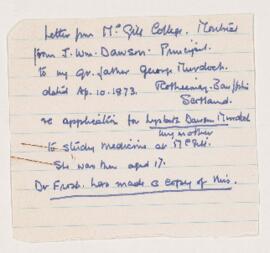 Letter from McGill College, Montreal
from J. Wm. Dawson - Principal
to my gr. father George Murdoch.
dated Ap. 10. 1873. Rothiemay - Banffshire
Scotland.
re application for Dawson Murdoch
my mother
to study medicine at McGill.
She was then aged 17.
Dr Frosh. has made a copy of this.